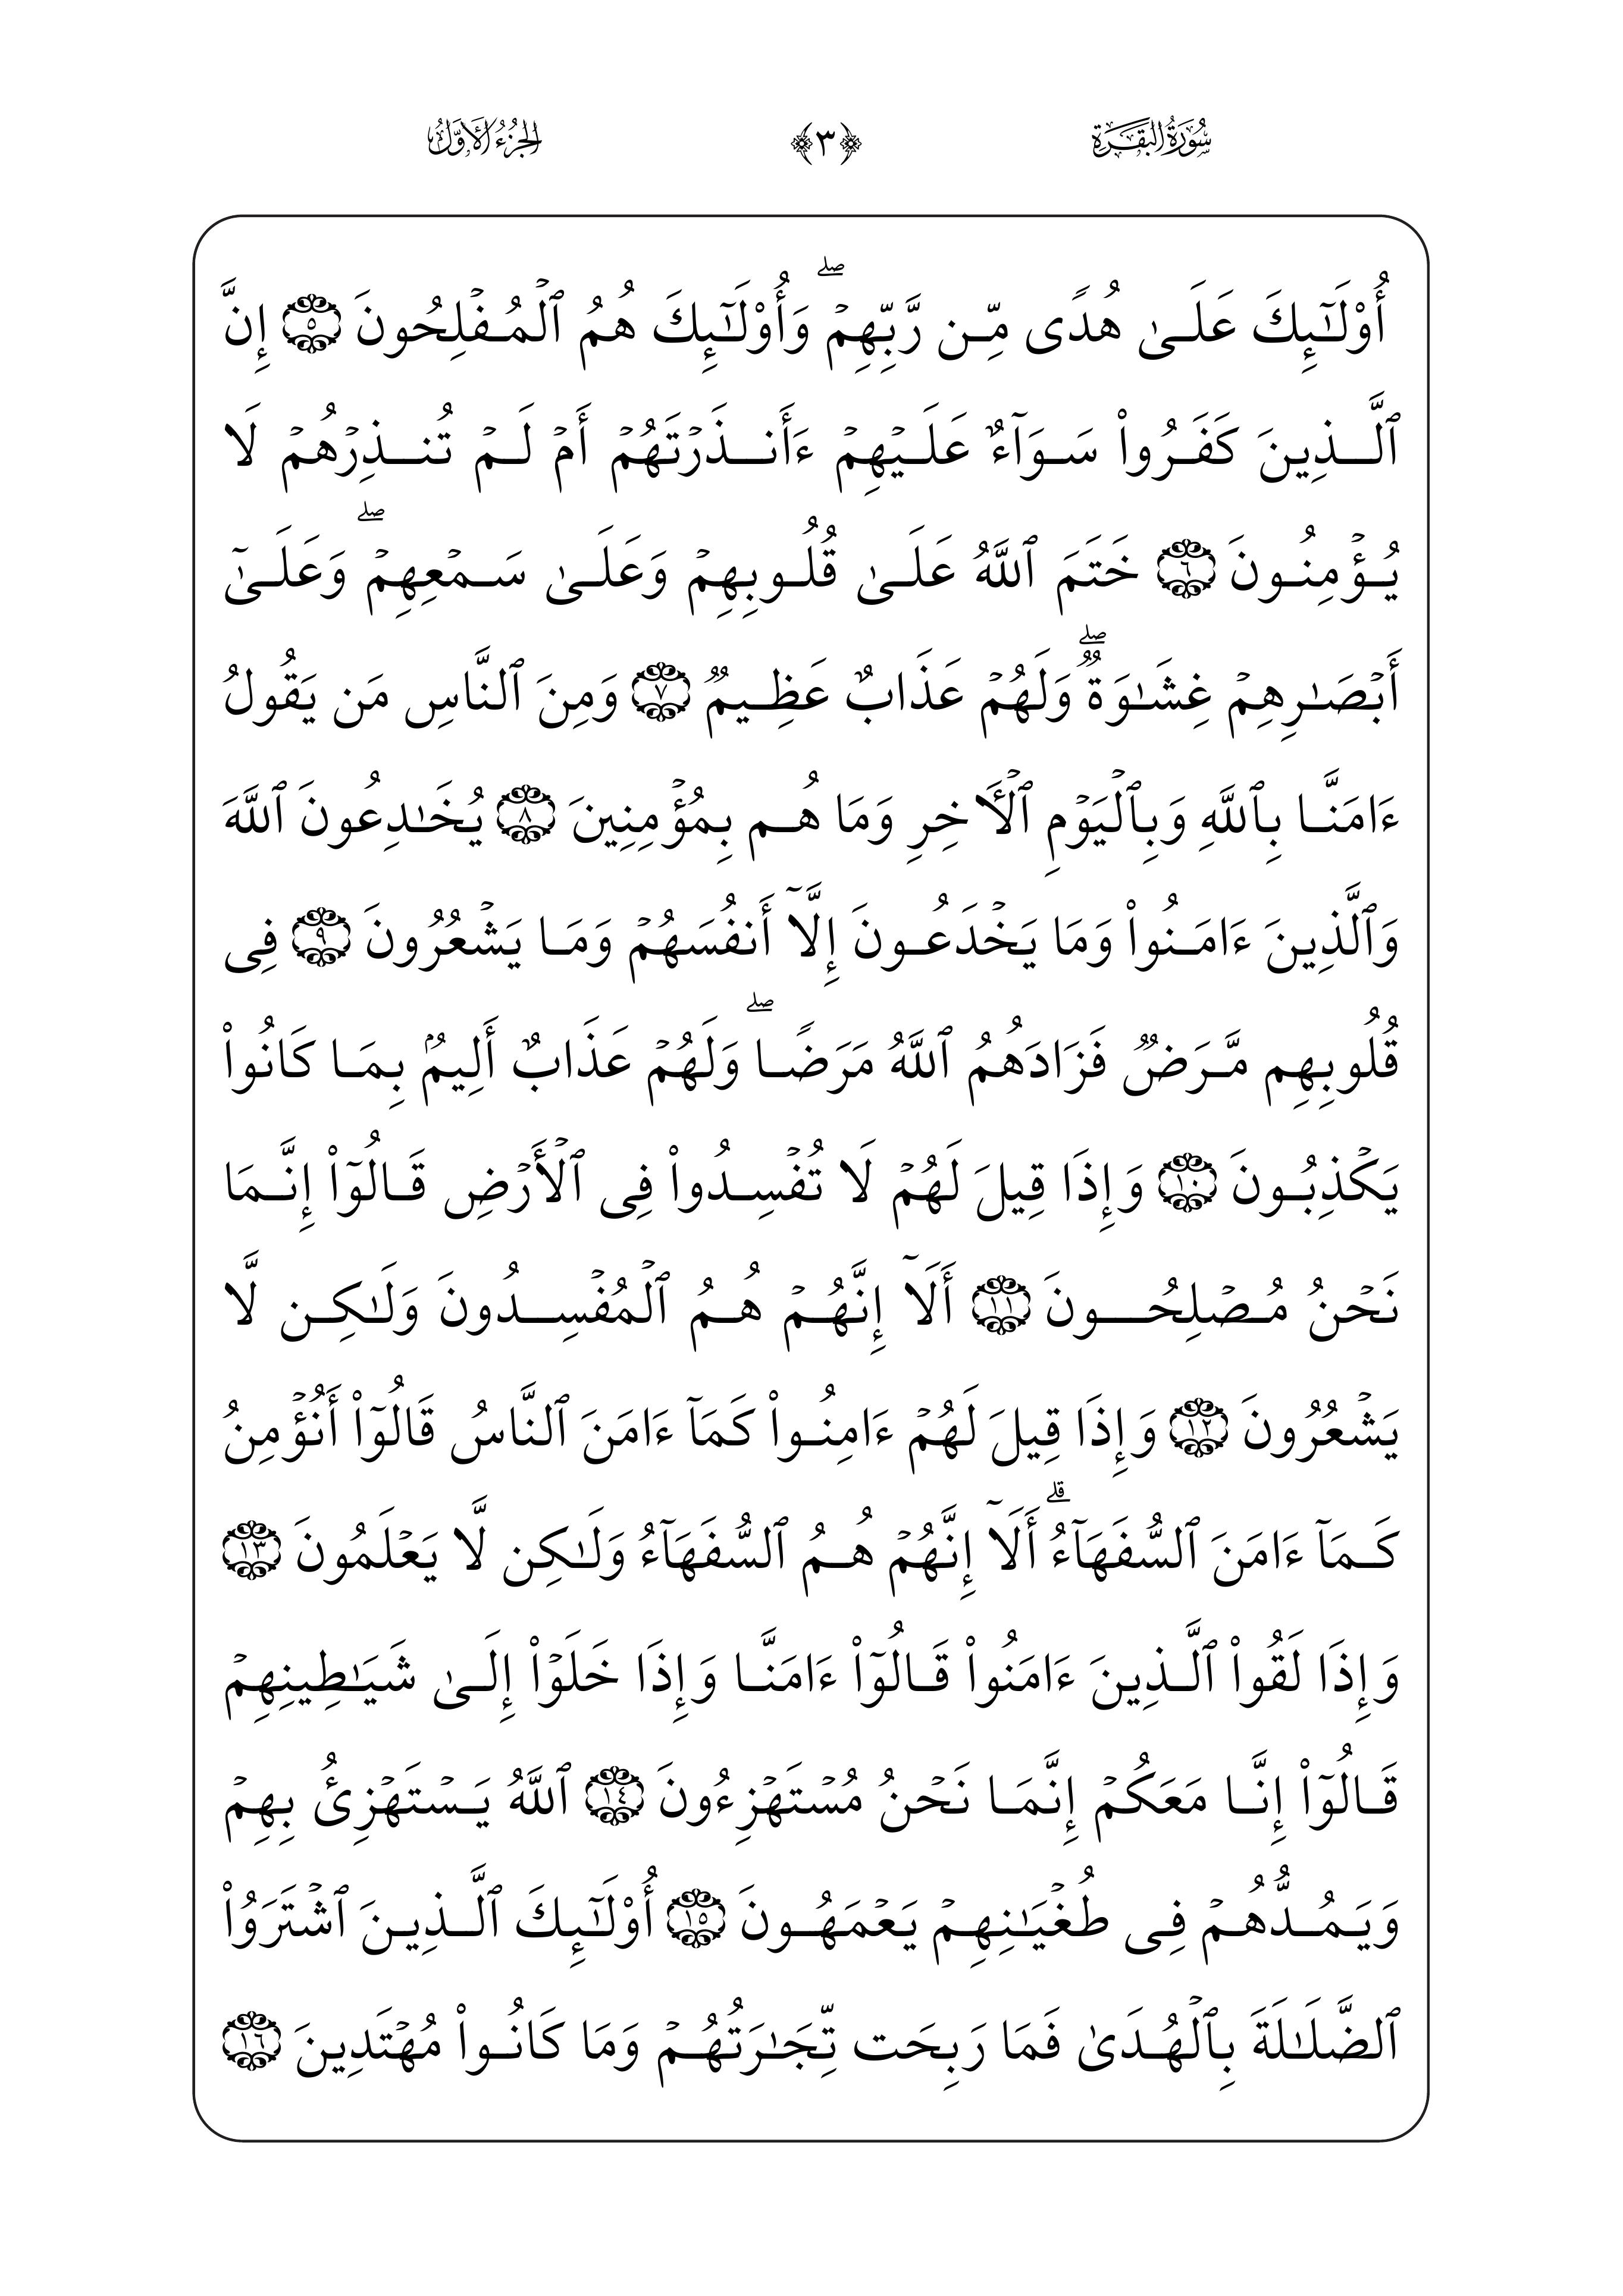 سُورَةُ البَقَرَةِ ﴿٣﴾ الجُزْءُ الأَوَّلُ
أُوْلَـٰٓئِكَ عَلَىٰ هُدًى مِّن رَّبِّهِمۡۖ وَأُوْلَـٰٓئِكَ هُمُ ٱلۡمُفۡلِحُونَ ٥ إِنَّ
ٱلَّذِينَ كَفَرُواْ سَوَآءٌ عَلَيۡهِمۡ ءَأَنذَرۡتَهُمۡ أَمۡ لَمۡ تُنذِرۡهُمۡ لَا
يُؤۡمِنُونَ ٦ خَتَمَ ٱللَّهُ عَلَىٰ قُلُوبِهِمۡ وَعَلَىٰ سَمۡعِهِمۡۖ وَعَلَىٰٓ
أَبۡصَـٰرِهِمۡ غِشَـٰوَةٞۖ وَلَهُمۡ عَذَابٌ عَظِيمٞ ٧ وَمِنَ ٱلنَّاسِ مَن يَقُولُ
ءَامَنَّا بِٱللَّهِ وَبِٱلۡيَوۡمِ ٱلۡأٓخِرِ وَمَا هُم بِمُؤۡمِنِينَ ٨ يُخَـٰدِعُونَ ٱللَّهَ
وَٱلَّذِينَ ءَامَنُواْ وَمَا يَخۡدَعُونَ إِلَّآ أَنفُسَهُمۡ وَمَا يَشۡعُرُونَ ٩ فِى
قُلُوبِهِم مَّرَضٞ فَزَادَهُمُ ٱللَّهُ مَرَضًاۖ وَلَهُمۡ عَذَابٌ أَلِيمُۢ بِمَا كَانُواْ
يَكۡذِبُونَ ١٠ وَإِذَا قِيلَ لَهُمۡ لَا تُفۡسِدُواْ فِى ٱلۡأَرۡضِ قَالُوٓاْ إِنَّمَا
نَحۡنُ مُصۡلِحُونَ ١١ أَلَآ إِنَّهُمۡ هُمُ ٱلۡمُفۡسِدُونَ وَلَـٰكِن لَّا
يَشۡعُرُونَ ١٢ وَإِذَا قِيلَ لَهُمۡ ءَامِنُواْ كَمَآ ءَامَنَ ٱلنَّاسُ قَالُوٓاْ أَنُؤۡمِنُ
كَمَآ ءَامَنَ ٱلسُّفَهَآءُۗ أَلَآ إِنَّهُمۡ هُمُ ٱلسُّفَهَآءُ وَلَـٰكِن لَّا يَعۡلَمُونَ ١٣
وَإِذَا لَقُواْ ٱلَّذِينَ ءَامَنُواْ قَالُوٓاْ ءَامَنَّا وَإِذَا خَلَوۡاْ إِلَىٰ شَيَـٰطِينِهِمۡ
قَالُوٓاْ إِنَّا مَعَكُمۡ إِنَّمَا نَحۡنُ مُسۡتَهۡزِءُونَ ١٤ ٱللَّهُ يَسۡتَهۡزِئُ بِهِمۡ
وَيَمُدُّهُمۡ فِى طُغۡيَـٰنِهِمۡ يَعۡمَهُونَ ١٥ أُوْلَـٰٓئِكَ ٱلَّذِينَ ٱشۡتَرَوُاْ
ٱلضَّلَـٰلَةَ بِٱلۡهُدَىٰ فَمَا رَبِحَت تِّجَـٰرَتُهُمۡ وَمَا كَانُواْ مُهۡتَدِينَ ١٦